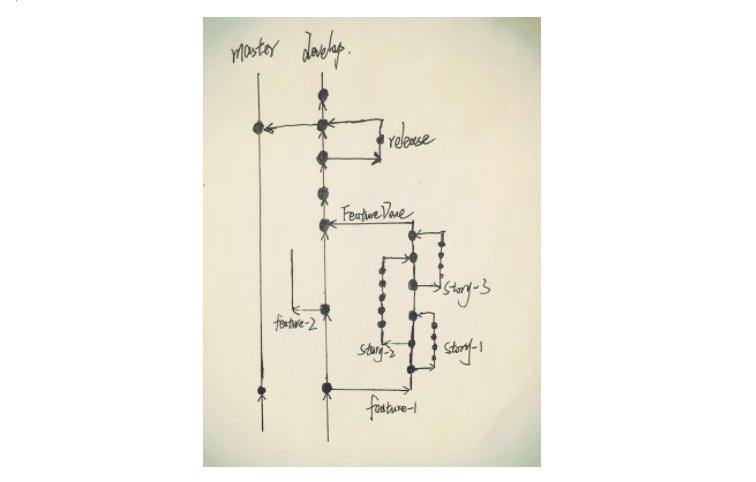 master develop.
release
Feature Done
story-3
feature-2
story-2 story-1
feature-1